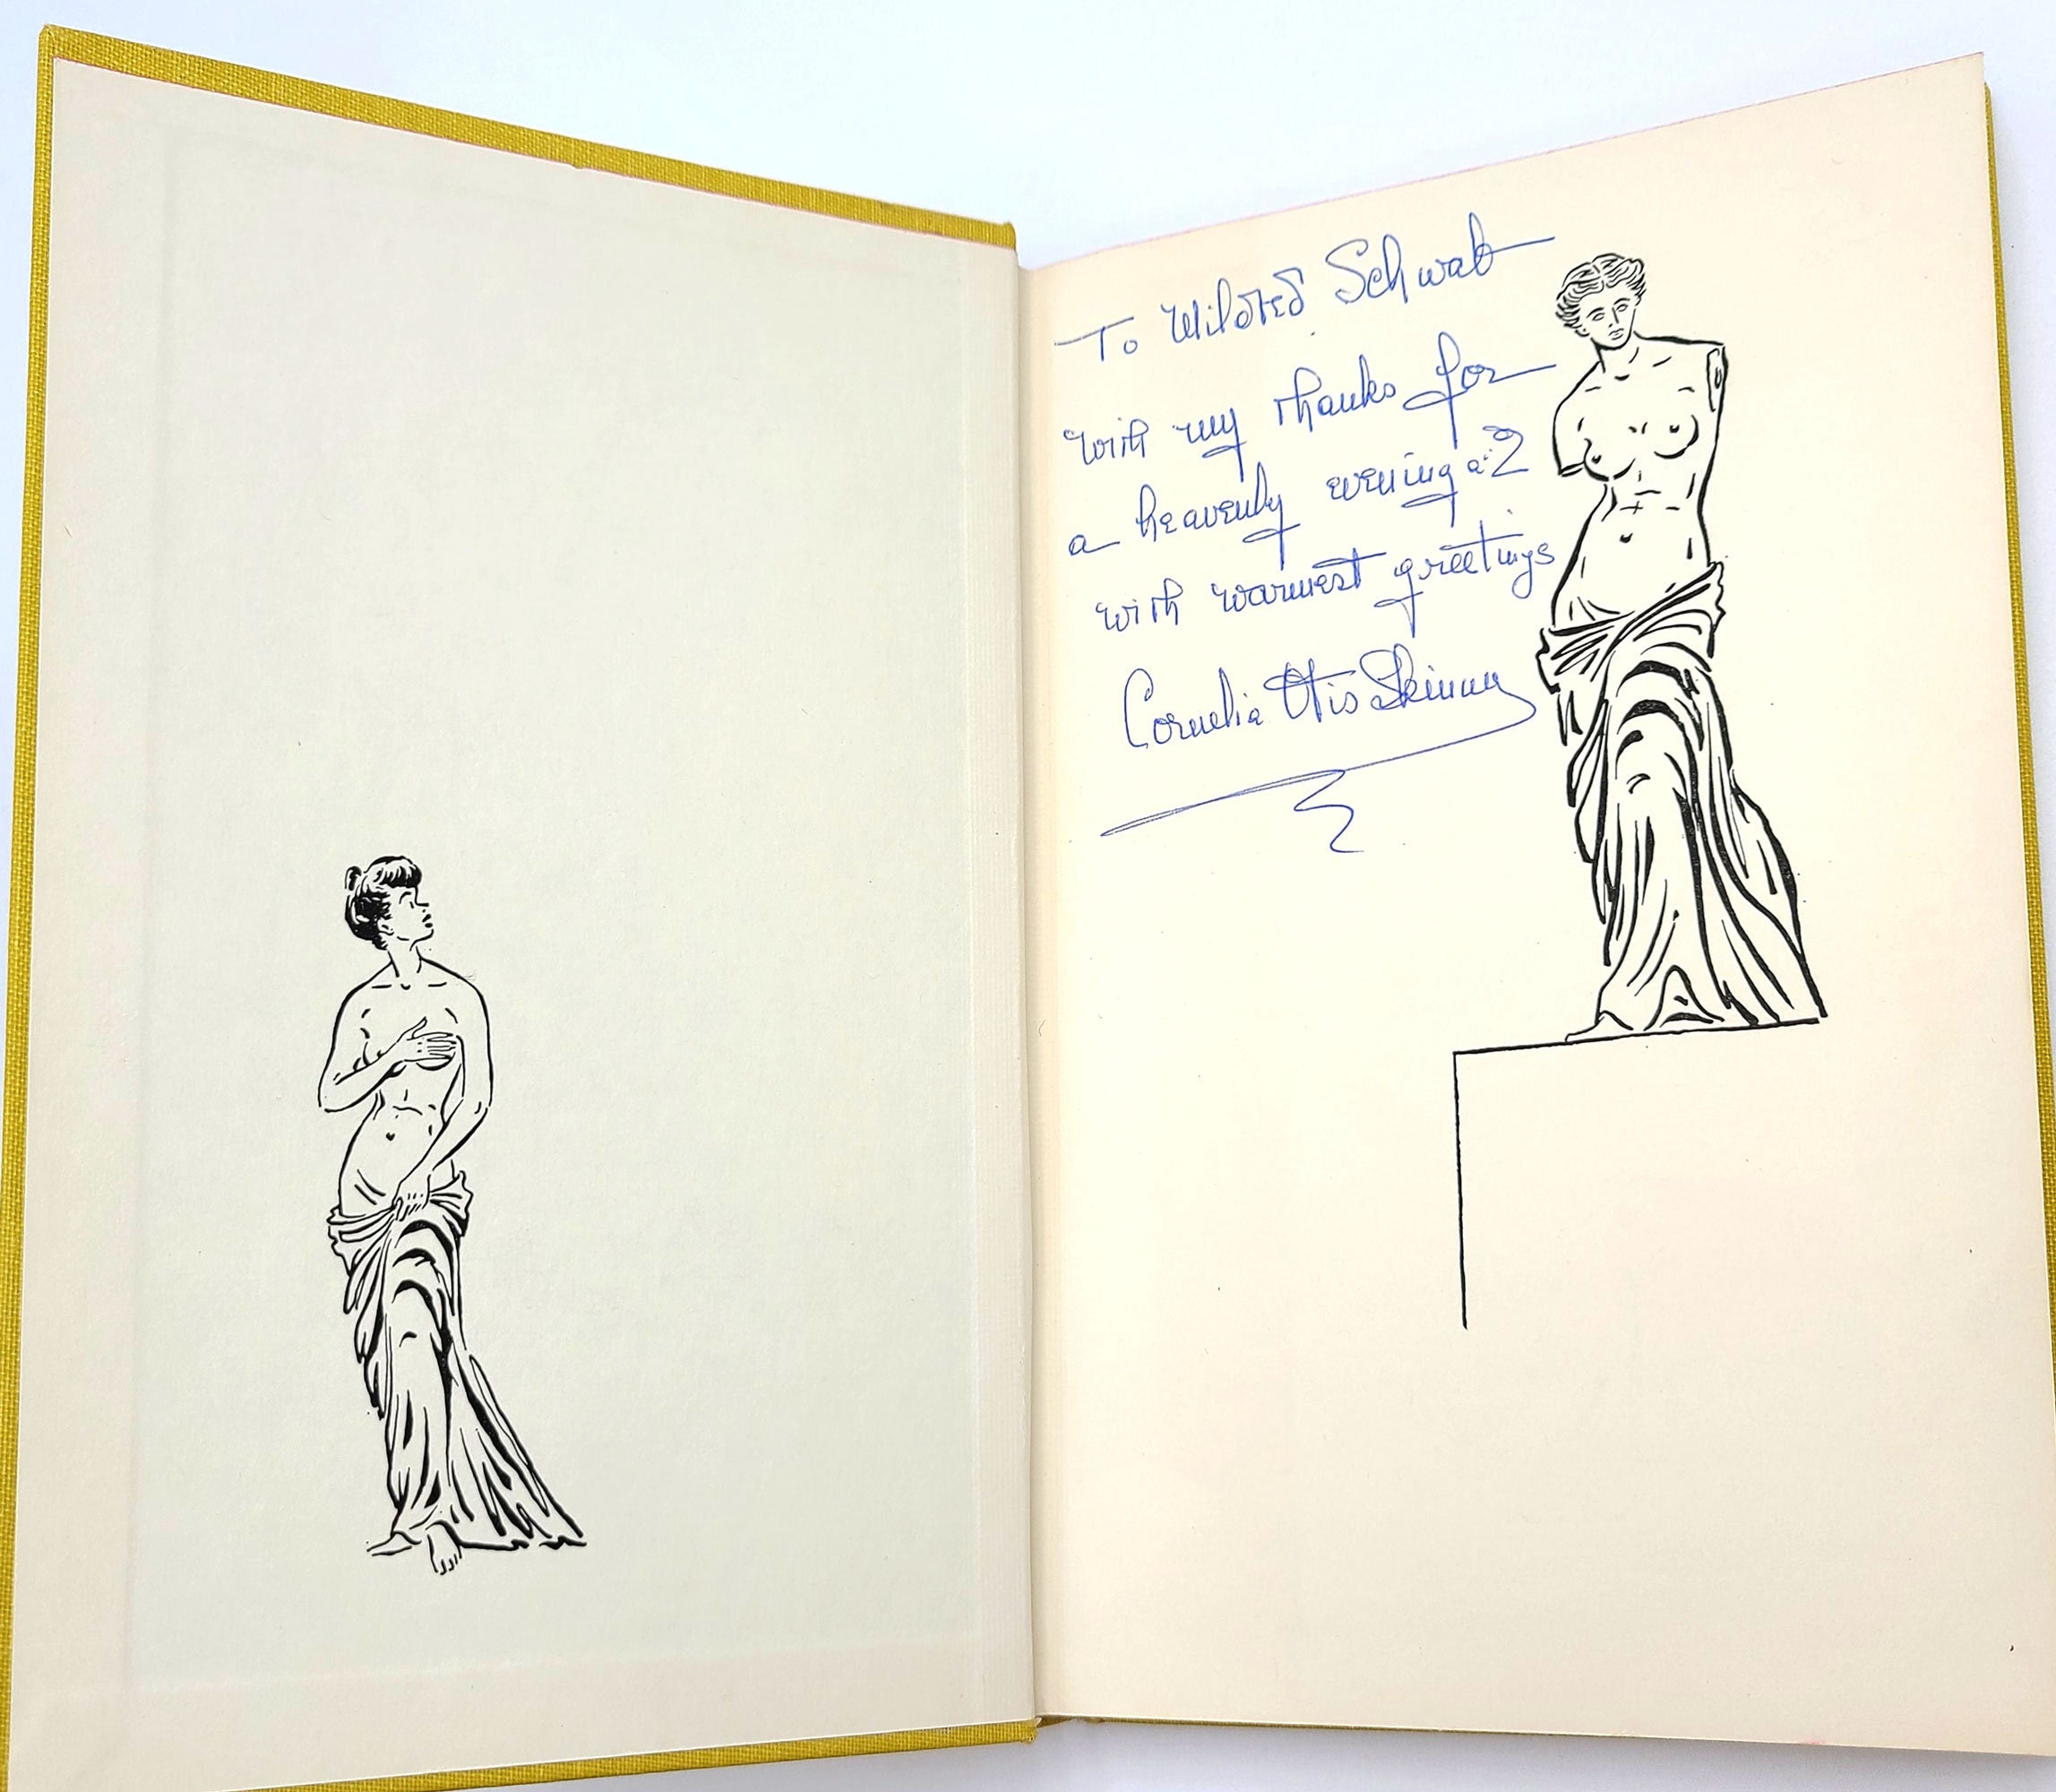 To Mildred Schwab
with my thanks for
a heavenly evening &
with warmest greetings
Cornelia Otis Skinner